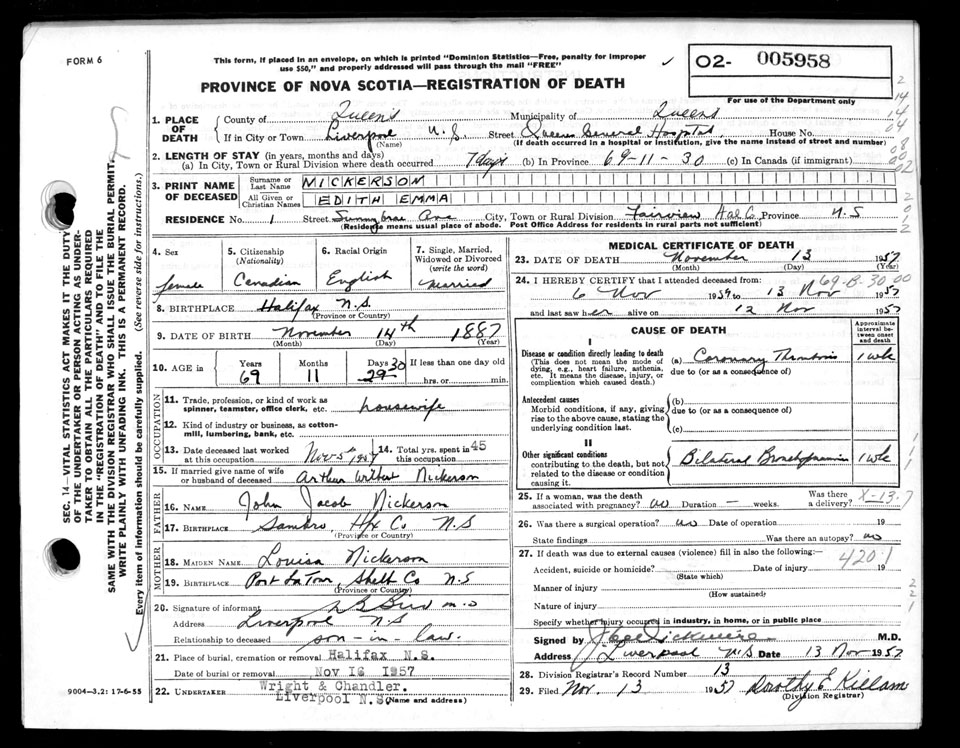 FORM 6
This form, if placed in an envelope, on which is printed "Dominion Statistics—Free, penalty for improper
use $50," and properly addressed will pass through the mail "FREE"
O2- 005958
For use of the Department only
PROVINCE OF NOVA SCOTIA—REGISTRATION OF DEATH
1. PLACE OF DEATH
County of Queens Municipality of Queens
If in City or Town Liverpool N.S. Street Queens General Hospital House No.
(Name) (If death occurred in a hospital or institution, give the name instead of street and number)
2. LENGTH OF STAY (in years, months and days)
(a) In City, Town or Rural Division where death occurred 7 days (b) In Province 69-11-30 (c) In Canada (if immigrant)
3. PRINT NAME OF DECEASED
Surname or Last Name NICKERSON
All Given or Christian Names EDITH EMMA
RESIDENCE No. 1 Street Sunnybrae Ave City, Town or Rural Division Fairview Hal Co. Province N.S
(Residence means usual place of abode. Post Office Address for residents in rural parts not sufficient)
4. Sex
female
5. Citizenship
(Nationality)
Canadian
6. Racial Origin
English
7. Single, Married,
Widowed or Divorced
(write the word)
Married
8. BIRTHPLACE Halifax N.S.
(Province or Country)
9. DATE OF BIRTH November 14th 1887
(Month) (Day) (Year)
10. AGE in
Years Months Days If less than one day old
69 11 29 30 hrs. or min.
OCCUPATION
11. Trade, profession, or kind of work as
spinner, teamster, office clerk, etc. housewife
12. Kind of industry or business, as cotton-
mill, lumbering, bank, etc.
13. Date deceased last worked
at this occupation Nov 5th 1957
14. Total yrs. spent in 45
this occupation
15. If married give name of wife
or husband of deceased Arthur Wilbert Nickerson
FATHER
16. Name John Jacob Nickerson
17. BIRTHPLACE Sambro, Hfx Co N.S
(Province or Country)
MOTHER
18. MAIDEN NAME Louisa Nickerson
19. BIRTHPLACE Port LaTour, Shelb Co N.S
(Province or Country)
20. Signature of informant M.D
Address Liverpool N.S
Relationship to deceased son-in-law.
21. Place of burial, cremation or removal Halifax N.S.
Date of burial or removal Nov 16 1957
22. UNDERTAKER Wright & Chandler.
Liverpool N.S.
(Name and address)
9004—3.2: 17-6-55
MEDICAL CERTIFICATE OF DEATH
23. DATE OF DEATH November 13 1957
(Month) (Day) (Year)
69-B-30.00
24. I HEREBY CERTIFY that I attended deceased from:
6 Nov 1957 to 13 Nov 1957
and last saw her alive on 12 Nov 1957
CAUSE OF DEATH
Approximate interval between onset and death
I
Disease or condition directly leading to death
(This does not mean the mode of
dying, e.g., heart failure, asthenia,
etc. It means the disease, injury, or
complication which caused death.)
(a) Coronary Thrombosis 1 wk
due to (or as a consequence of)
Antecedent causes
Morbid conditions, if any, giving
rise to the above cause, stating the
underlying condition last.
(b)
due to (or as a consequence of)
(c)
II
Other significant conditions
contributing to the death, but not
related to the disease or condition
causing it.
Bilateral Bronchopneumonia 1 wk
25. If a woman, was the death
associated with pregnancy? no Duration — weeks. Was there a delivery?
X-13.7
26. Was there a surgical operation? no Date of operation 19
State findings Was there an autopsy? no
27. If death was due to external causes (violence) fill in also the following:—
4201
Accident, suicide or homicide? Date of injury 19
(State which)
Manner of injury
(How sustained)
Nature of injury
Specify whether injury occurred in industry, in home, or in public place
Signed by M.D.
Address Liverpool N.S Date 13 Nov 1957
28. Division Registrar's Record Number 13
29. Filed Nov. 13 1957 Dorothy E Killam
(Division Registrar)
SEC. 14—VITAL STATISTICS ACT MAKES IT THE DUTY
OF THE UNDERTAKER OR PERSON ACTING AS UNDER-
TAKER TO OBTAIN ALL THE PARTICULARS REQUIRED
IN THE "REGISTRATION OF DEATH" AND TO FILE THE
SAME WITH THE DIVISION REGISTRAR WHO SHALL ISSUE THE BURIAL PERMIT.
WRITE PLAINLY WITH UNFADING INK. THIS IS A PERMANENT RECORD.
Every item of information should be carefully supplied. (See reverse side for instructions.)